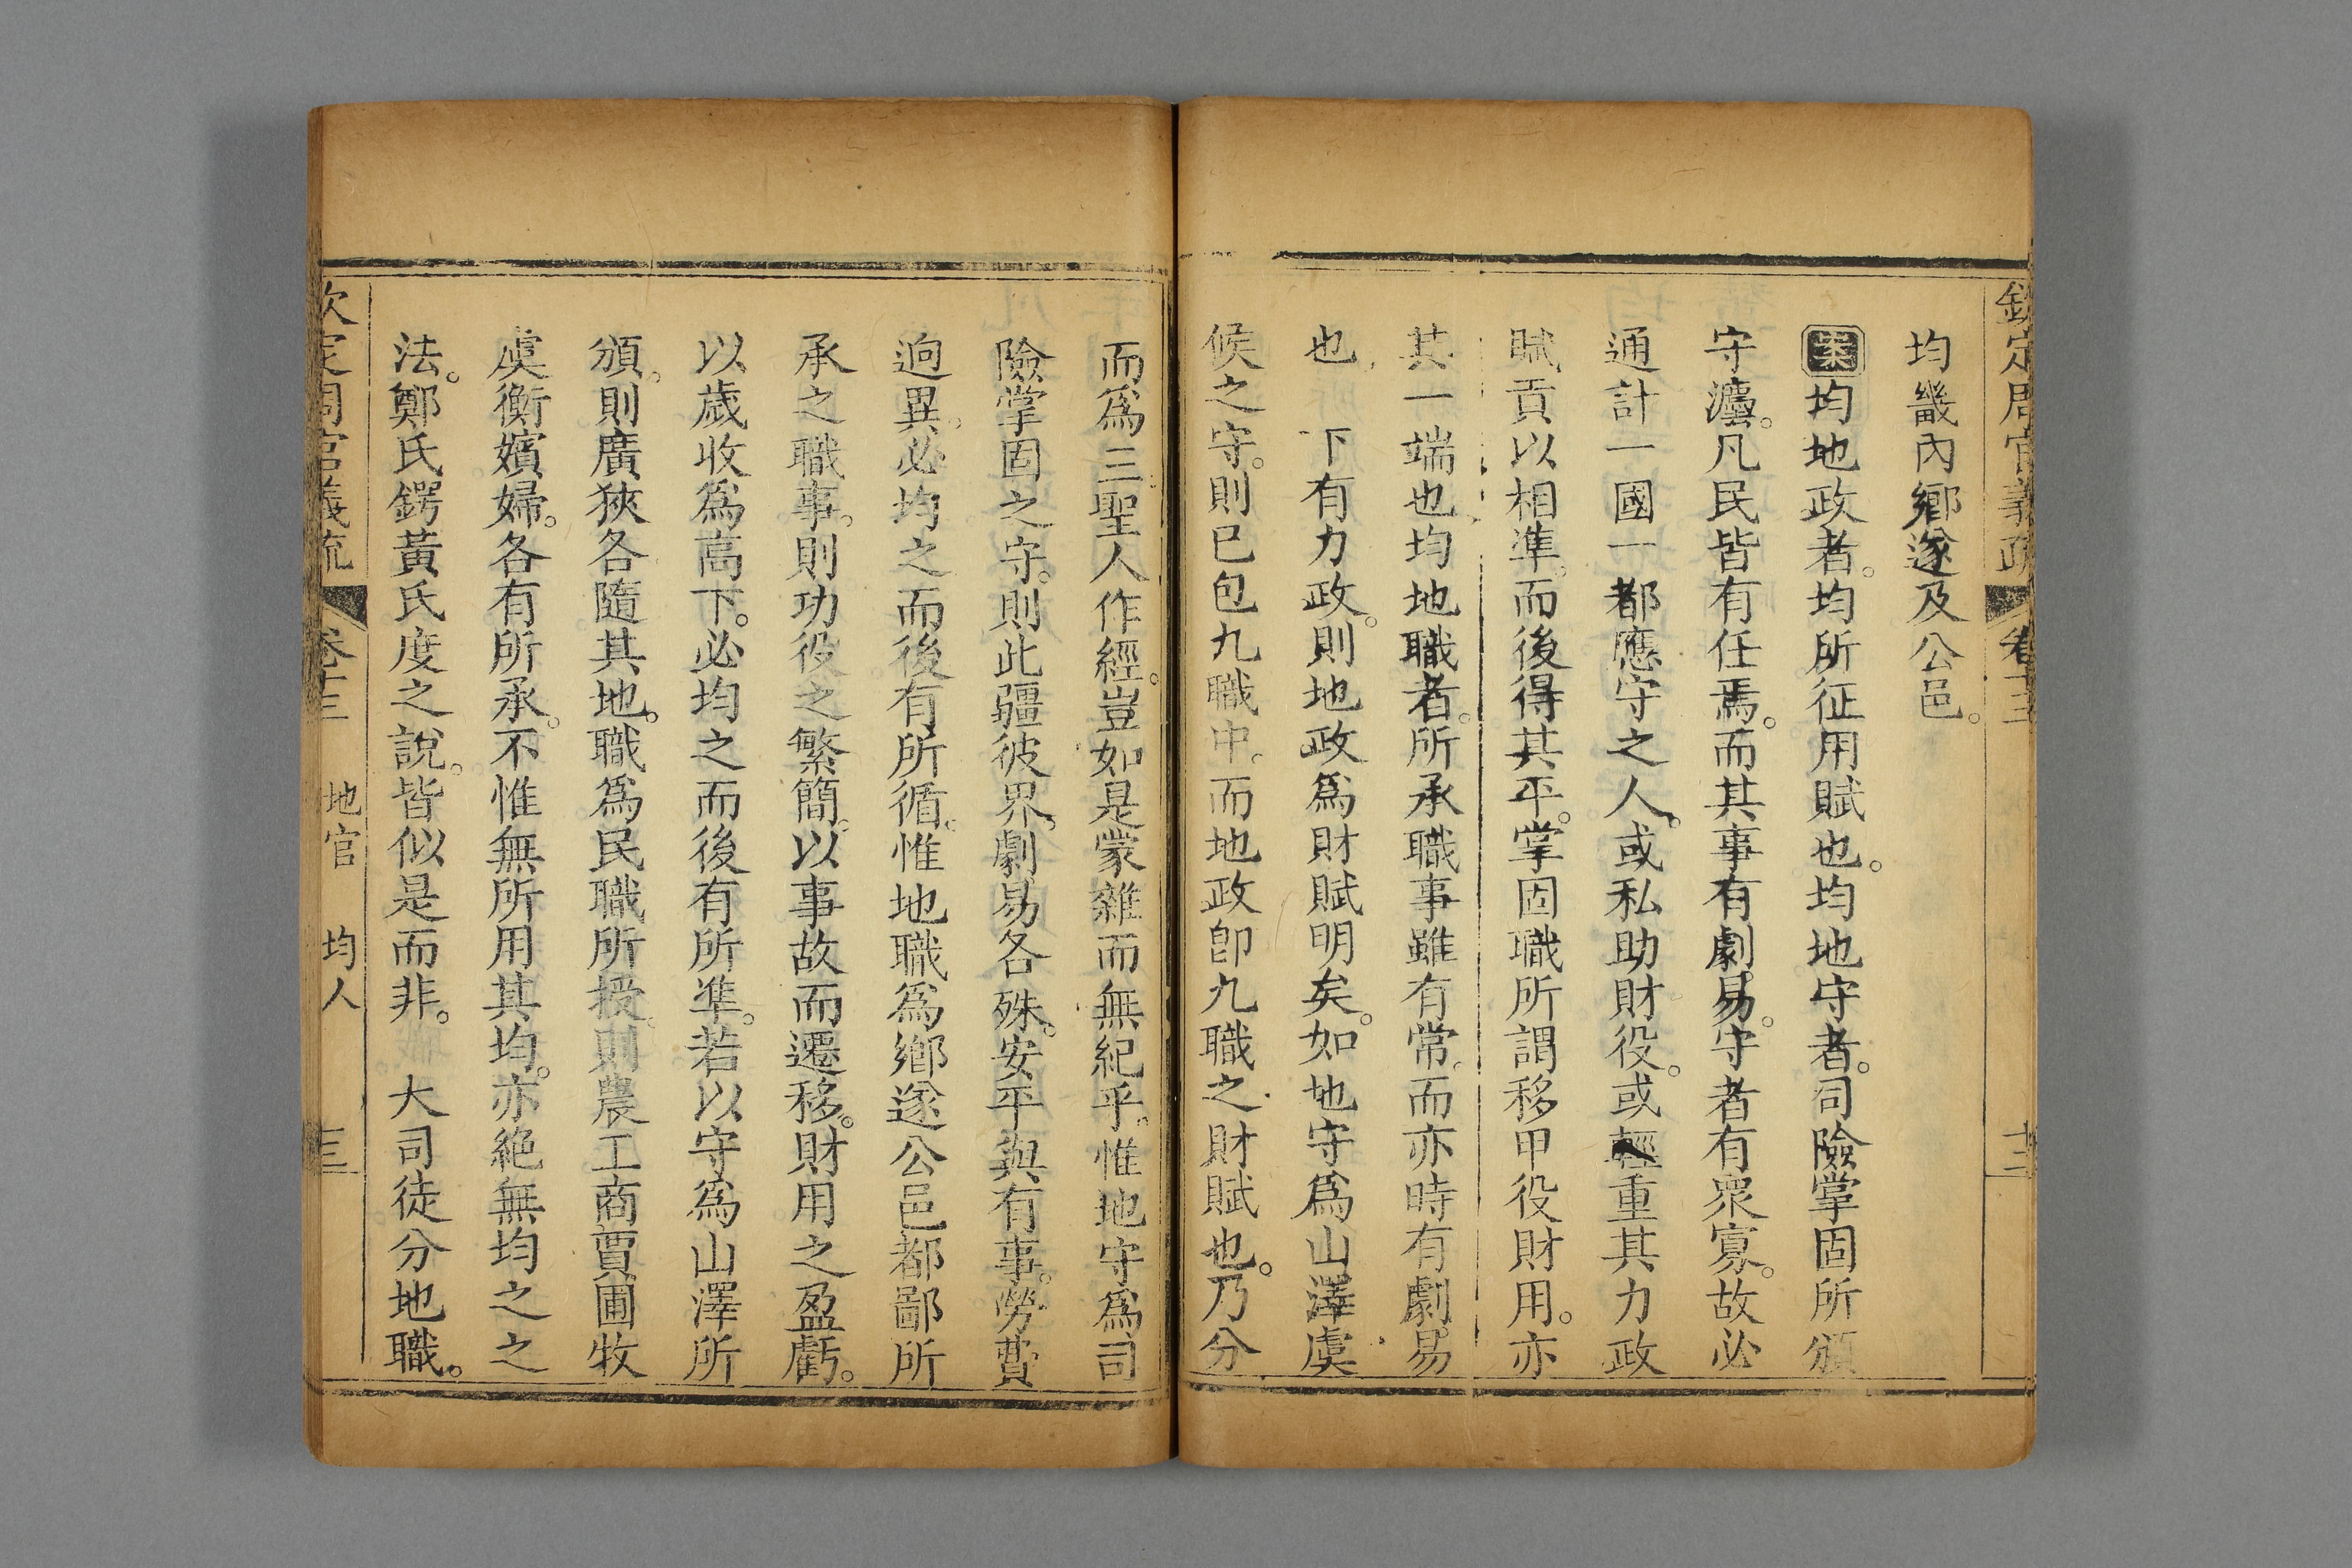 欽定周官義疏 卷十三
均畿內鄉遂及公邑。
案均地政者。均所征用賦也。均地守者。司險掌固所頒
守灋。凡民皆有任焉。而其事有劇易。守者有眾寡。故必
通計一國一都應守之人。或私助財役。或輕重其力政
賦貢以相準。而後得其平。掌固職所謂移甲役財用。亦
其一端也。均地職者。所承職事雖有常。而亦時有劇易
也 下有力政。則地政爲財賦明矣。如地守爲山澤虞
候之守。則已包九職中。而地政卽九職之財賦也。乃分
而爲三。聖人作經。豈如是蒙雜而無紀乎。惟地守爲司
險掌固之守。則此疆彼界。劇易各殊。安平與有事。勞費
迥異。必均之而後有所循。惟地職爲鄉遂公邑都鄙所
承之職事。則功役之繁簡。以事故而遷移。財用之盈虧。
以歲收爲高下。必均之而後有所準。若以守爲山澤所
頒。則廣狹各隨其地。職爲民職所授。則農工商賈圃牧
虞衡嬪婦。各有所承。不惟無所用其均。亦絶無均之之
法。鄭氏鍔黃氏度之說。皆似是而非。 大司徒分地職。
欽定周官義疏 卷十三 地官 均人